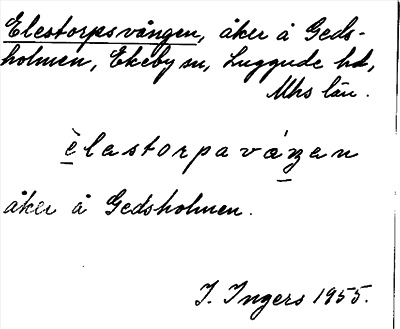 Elestorpsvången, åker å Geds-
holmen, Ekeby sn, Luggude hd,
Mhs län.
è̱lastorpavá́ṉan
åker å Gedsholmen.
I. Ingers 1955.